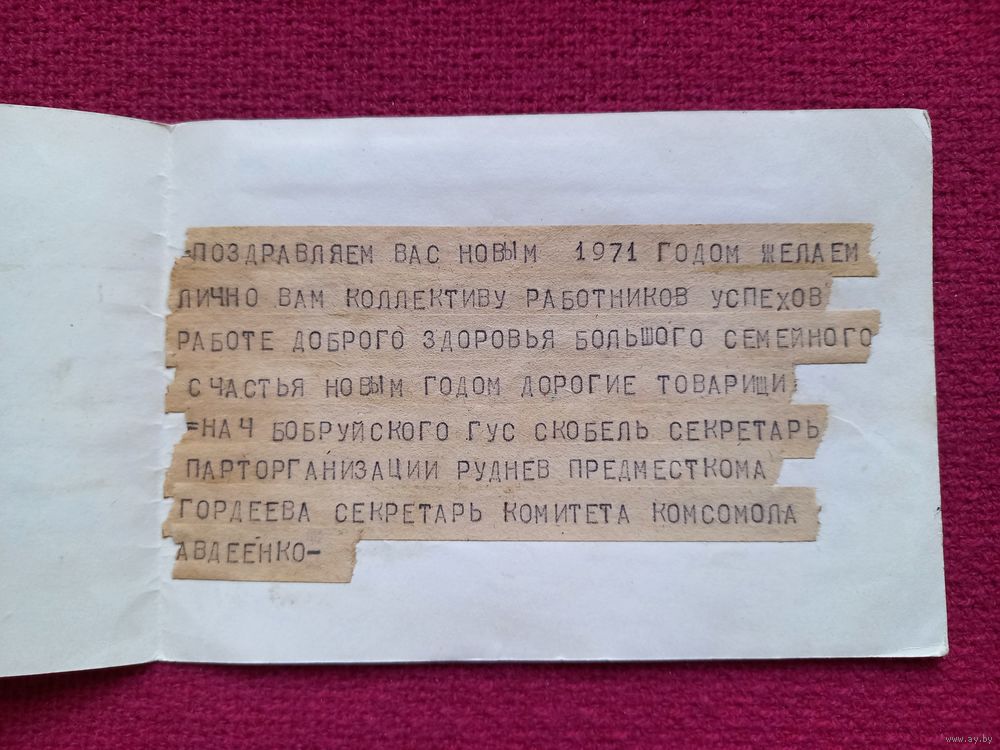 =ПОЗДРАВЛЯЕМ ВАС НОВЫМ 1971 ГОДОМ ЖЕЛАЕМ
ЛИЧНО ВАМ КОЛЛЕКТИВУ РАБОТНИКОВ УСПЕХОВ
РАБОТЕ ДОБРОГО ЗДОРОВЬЯ БОЛЬШОГО СЕМЕЙНОГО
СЧАСТЬЯ НОВЫМ ГОДОМ ДОРОГИЕ ТОВАРИЩИ
=НАЧ БОБРУЙСКОГО ГУС СКОБЕЛЬ СЕКРЕТАРЬ
ПАРТОРГАНИЗАЦИИ РУДНЕВ ПРЕДМЕСТКОМА
ГОРДЕЕВА СЕКРЕТАРЬ КОМИТЕТА КОМСОМОЛА
АВДЕЕНКО-
www.ay.by